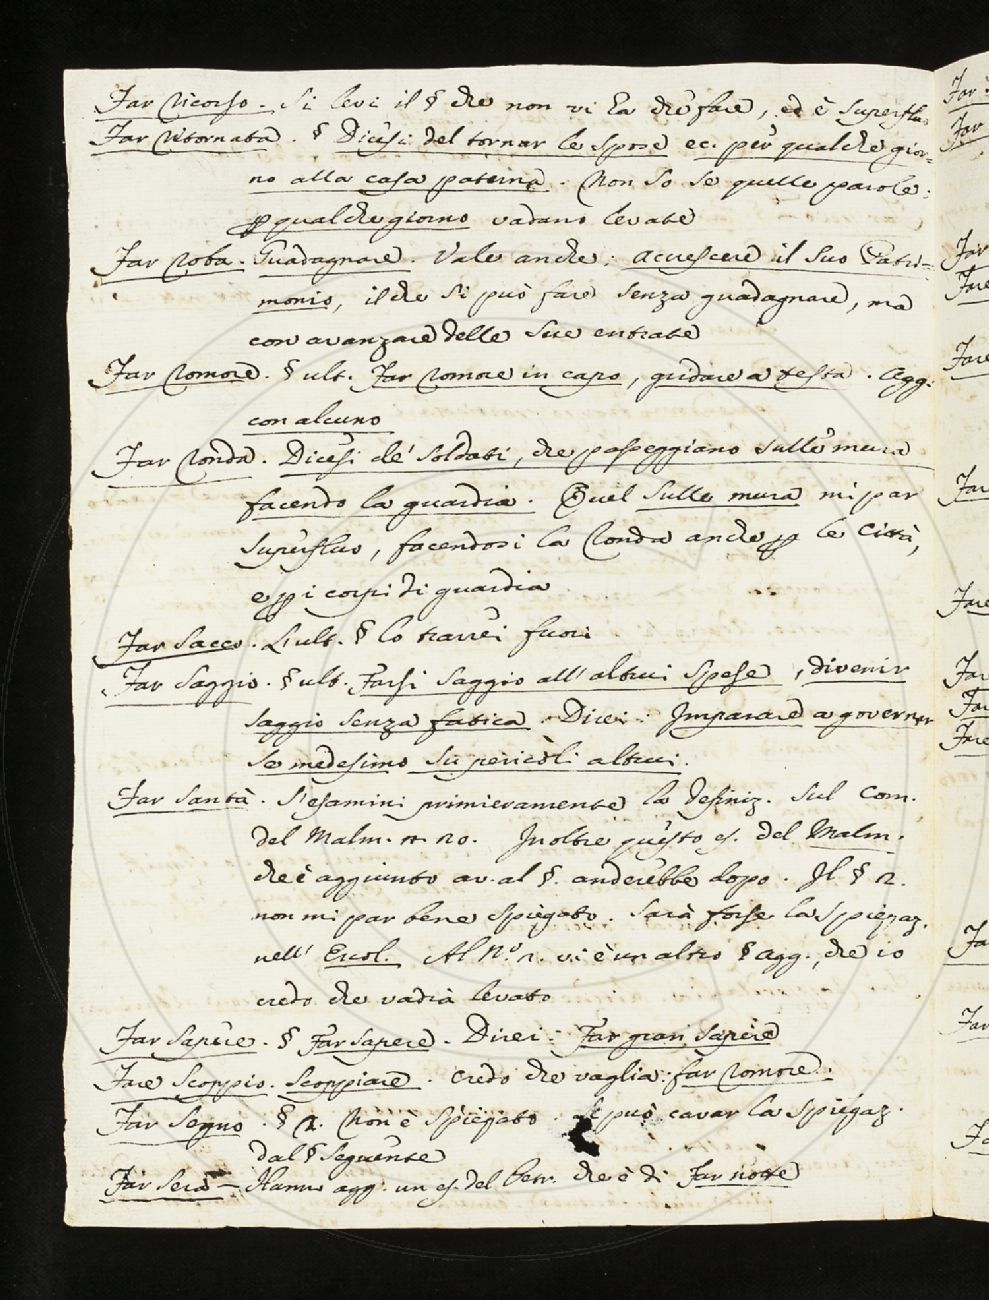 Far ricorso. Si levi il § che non vi ha che fare, ed è superfluo
Far ritornata. § Dicesi del tornar le spose ec. per qualche gior-
no alla casa paterna. Non so se quelle parole:
p qualche giorno vadano levate
Far roba. Guadagnare. Vale anche: accrescere il suo Patri-
monio, il che si può fare senza guadagnare, ma
con avanzare delle sue entrate
Far romore. § ult. Far romore in capo, gridare a testa. Agg.
con alcuno
Far ronda. Dicesi de' soldati, che passeggiano sulle mura
facendo la guardia. Quel sulle mura mi par
superfluo, facendosi la ronda anche p le Città,
e p i corpi di guardia
Far sacco. L'ult. § lo trarrei fuori
Far saggio. § ult. Farsi saggio all'altrui spese, divenir
saggio senza fatica. Direi: Imparare a governar
se medesimo su pericoli altrui.
Far santà. S'esamini primieramente la definiz. sul Com.
del Malm. 20. Inoltre questo es. del Malm.
che è aggiunto av. al §. anderebbe dopo. Il § 2.
non mi par bene spiegato. Sarà forse la spiegaz.
nell' Ercol. Al N.° 2. vi è un altro § agg., che io
credo che vadia levato
Far sapere. § Far sapere. Direi: Far gran sapere
Fare scoppio. Scoppiare. Credo che vaglia: far romore.
Far segno. § 2. Non è spiegato. Si può cavar la spiegaz.
dal § seguente
Far sera – Hanno agg. un es. del Petr. che è di Far notte
Far
Far
Far
Fare
Fare
Far
Fare
Far
Far
Fare
Fa
Far
Fa